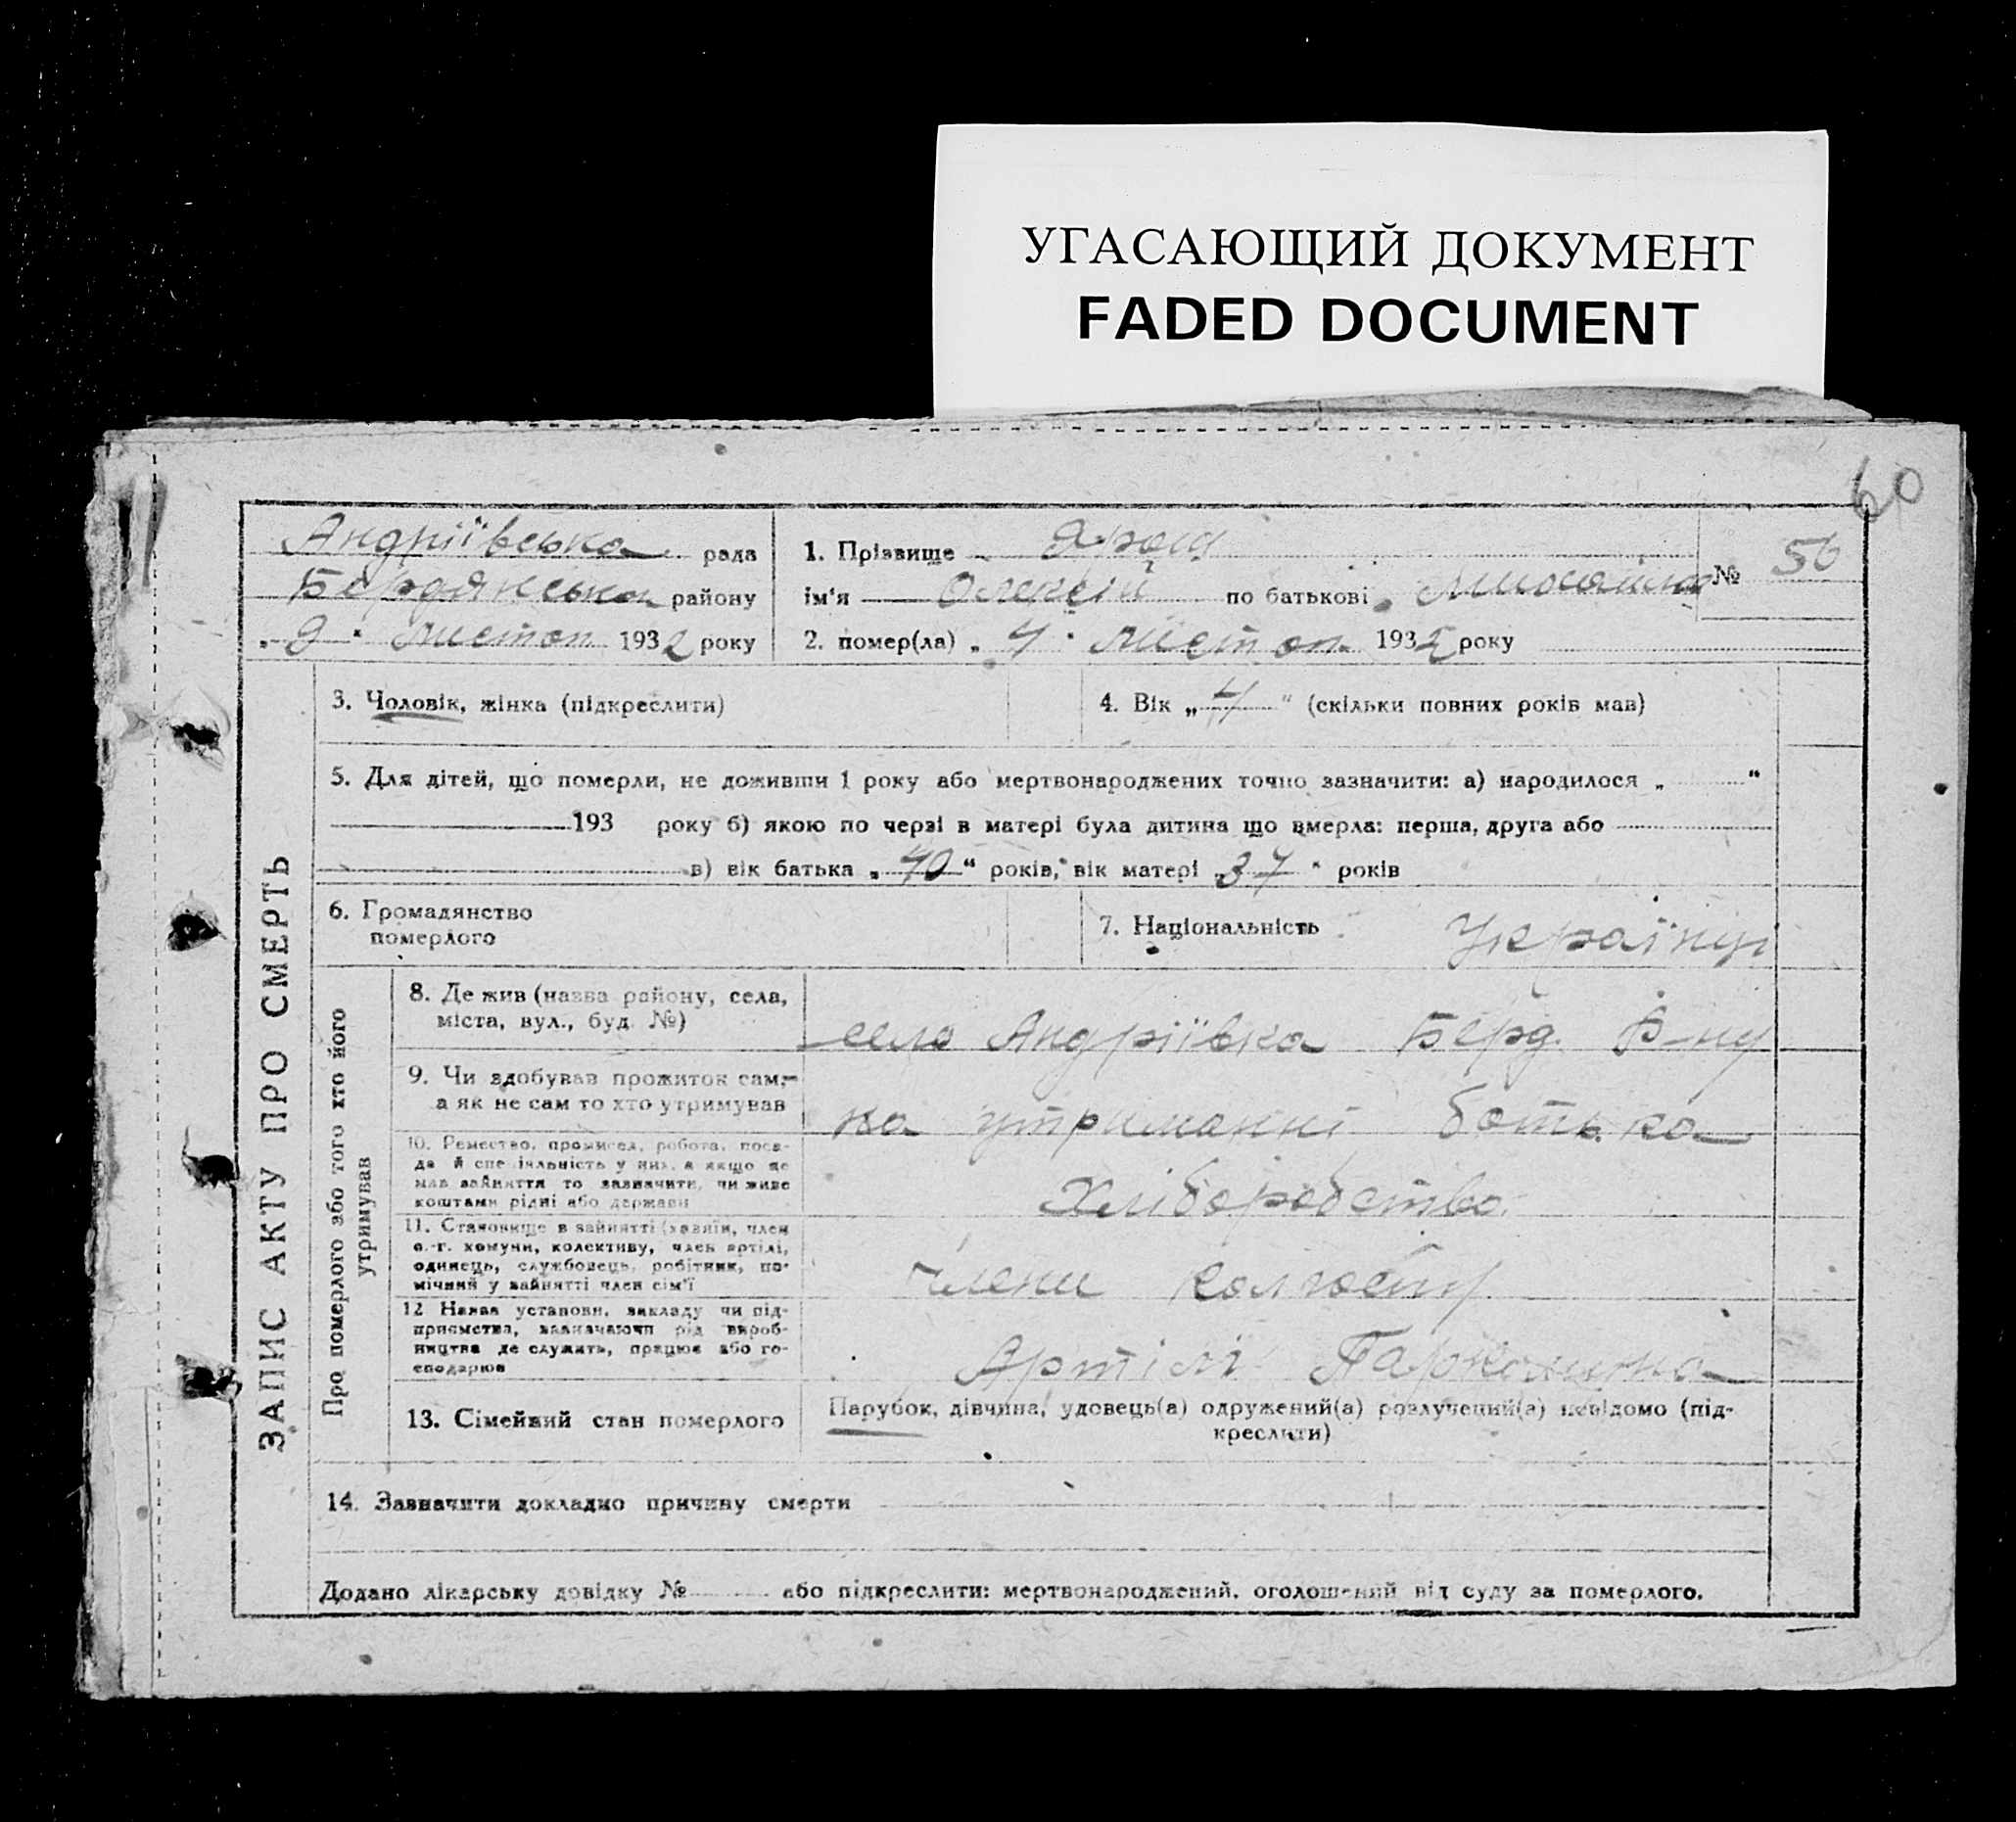 УГАСАЮЩИЙ ДОКУМЕНТ
FADED DOCUMENT
60
Андріївська рада
Бердянська району
„ 9 " листоп 1932 року
1. Прізвище Ярош
ім'я Олексій по батькові
№ 56
2. помер(ла) „ 4 " листоп. 1932 року
ЗАПИС АКТУ ПРО СМЕРТЬ
3. Чоловік, жінка (підкреслити)
4. Вік „ 4 " (скільки повних років мав)
5. Для дітей, що померли, не доживши 1 року або мертвонароджених точно зазначити: а) народилося „ "
193 року б) якою по черзі в матері була дитина що вмерла: перша, друга або
в) вік батька „ 40 " років, вік матері „ 37 " років
6. Громадянство
померлого
7. Національність Українци
Про померлого або того хто його
утримував
8. Де жив (назва району, села,
міста, вул., буд. №)
село Андріївка Берд. Р-ну
9. Чи здобував прожиток сам,
а як не сам то хто утримував
на утриманні батька
10. Ремество, промисел, робота, поса-
да й спеціяльність у них, а якщо не
мав зайняття то зазначити, чи живе
коштами рідні або держави
Хліборобство
11. Становище в зайнятті (хазяїн, член
с.-г. комуни, колективу, член артілі,
одинець, службовець, робітник, по-
мічний у зайнятті член сім'ї
члени колгоспу
12 Назва установи, закладу чи під-
приємства, зазначаючи рід вироб-
ництва де служить, працює або го-
сподарює
Артілі
13. Сімейний стан померлого
Парубок, дівчина, удовець(а) одружений(а) розлучений(а) невідомо (під-
креслити)
14. Зазначити докладно причину смерти
Додано лікарську довідку № або підкреслити: мертвонароджений, оголошений від суду за померлого.